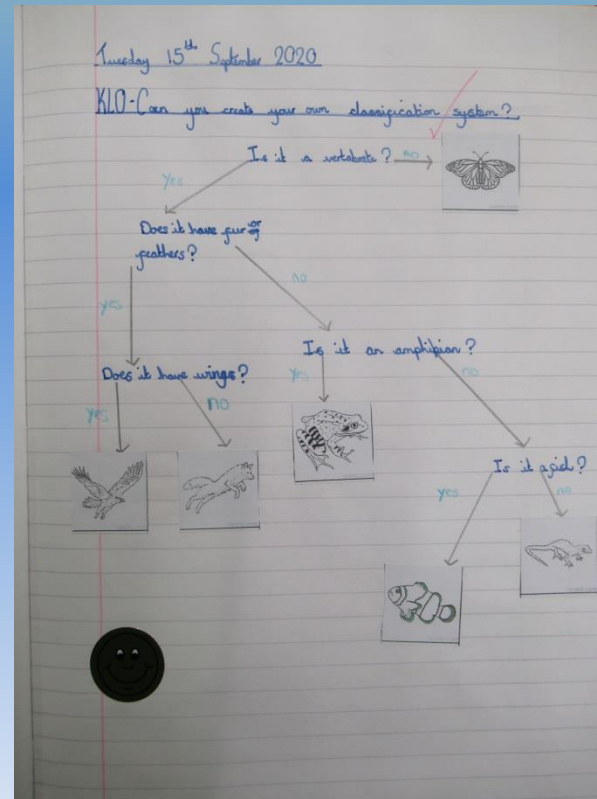 Tuesday 15th September 2020
KLO-Can you create your own classification system?
Is it a vertabrate? no
yes
Does it have fur or
feathers?
no
yes
Is it an amphibian?
Does it have wings?
yes
no
yes
no
Is it a
yes
no